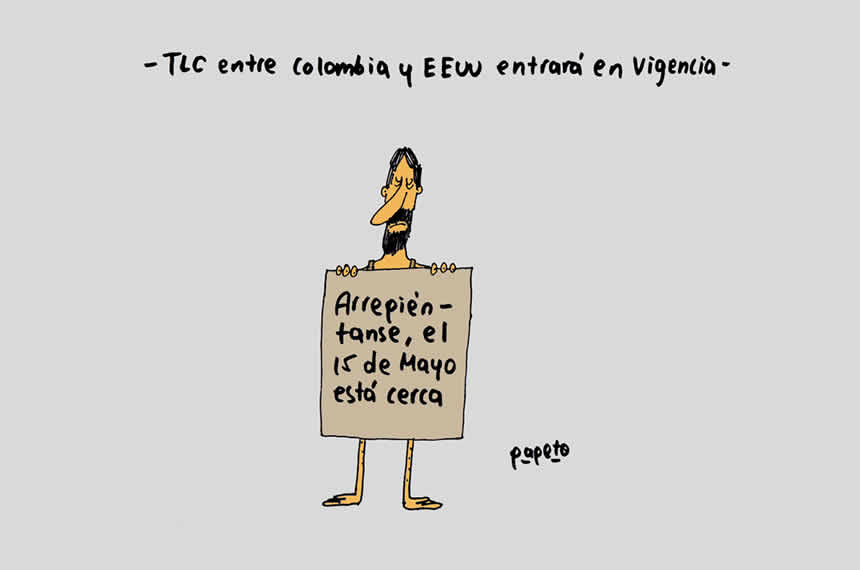 - TLC entre Colombia y EEUU entrará en Vigencia -
Arrepién-
tanse, el
15 de Mayo
está cerca
papeto